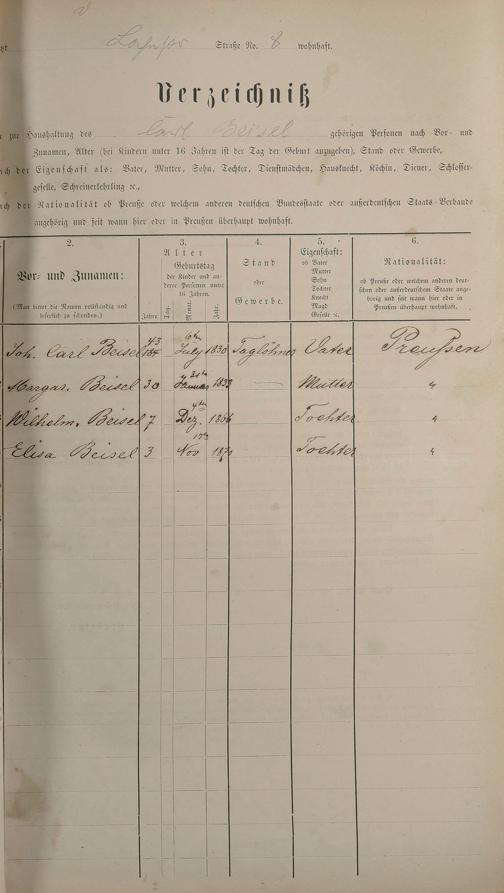 Straße No. 8 wohnhaft.
Verzeichniß
zur Haushaltung des Carl Beisel gehörigen Personen nach Vor- und
Zunamen, Alter (bei Kindern unter 16 Jahren ist der Tag der Geburt anzugeben), Stand oder Gewerbe,
nach der Eigenschaft als: Vater, Mutter, Sohn, Tochter, Dienstmädchen, Hausknecht, Köchin, Diener, Schlosser-
geselle, Schreinerlehrling ꝛc.,
nach der Nationalität ob Preuße oder welchem anderen deutschen Bundesstaate oder außerdeutschen Staats-Verbande
angehörig und seit wann hier oder in Preußen überhaupt wohnhaft.
2. 3. 4. 5. 6.
Vor- und Zunamen:
(Man bittet die Namen vollständig und
leserlich zu schreiben.)
Alter
Geburtstag
der Kinder und an-
derer Personen unter
16 Jahren.
Jahre Tag. Monat. Jahr.
Stand
oder
Gewerbe.
Eigenschaft:
ob Vater
Mutter
Sohn
Tochter
Knecht
Magd
Geselle ꝛc.
Nationalität:
ob Preuße oder welchem anderen deut-
schen oder außerdeutschen Staate ange-
hörig und seit wann hier oder in
Preußen überhaupt wohnhaft.
Joh. Carl Beisel 43 6ten July 1830 Taglöhner Vater Preußen
Margar. Beisel 30 31ten Januar Mutter "
Wilhelm. Beisel 7 4ten Dez. 1866 Tochter "
Elisa Beisel 3 Nov 1870 Tochter "